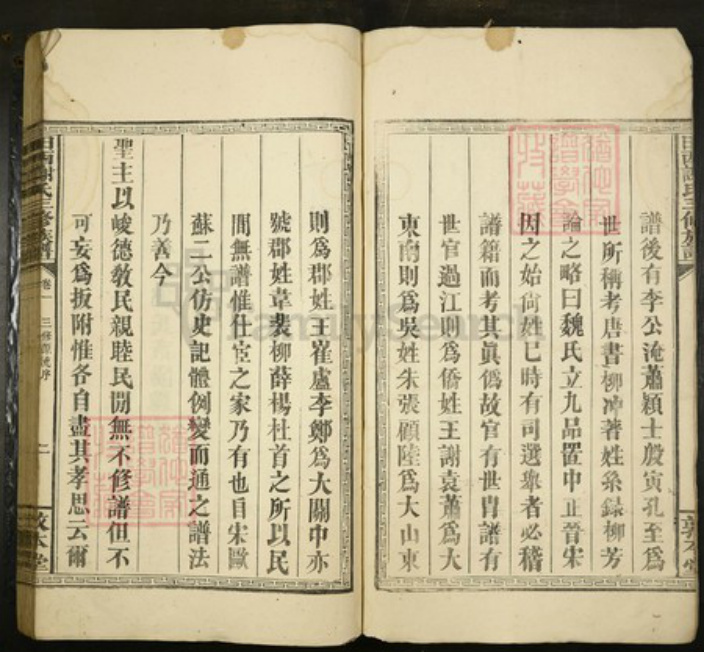 譜後有李公淹蕭穎士殷寅孔至爲
世所稱考唐書柳冲著姓系錄柳芳
論之略曰魏氏立九品置中正晉宋
因之始尙姓巳時有司選舉者必稽
譜籍而考其眞僞故官有世冑譜有
世官過江則爲僑姓王謝袁蕭爲大
東南則爲吳姓朱張顧陸爲大山東
則爲郡姓王崔盧李鄭爲大關中亦
號郡姓韋裴柳薛楊杜首之所以民
間無譜惟仕宦之家乃有也自宋歐
蘇二公仿史記體例變而通之譜法
乃善今
聖主以峻德敎民親睦民間無不修譜但不
可妄爲扳附惟各自盡其孝思云爾
謝氏三修族譜
卷一
三修源流序
二
敦本堂
FamilySearch